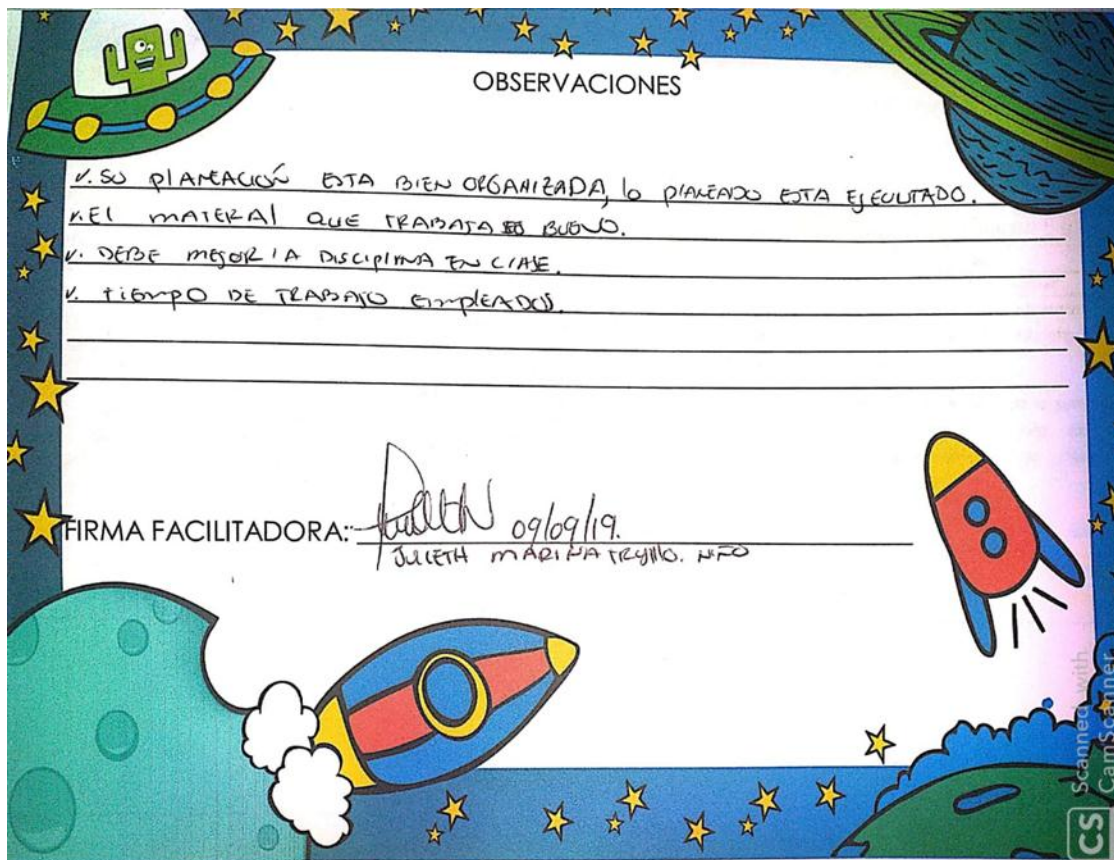 OBSERVACIONES
✓. SU PLANEACIÓN ESTA BIEN ORGANIZADA, lo PLANEADO ESTA EJECUTADO.
✓. El MATERIAl QUE TRABAJA ES BUENO.
✓. DEBE MEJOR LA DISCIPLINA EN CLASE.
✓. tiEMPO DE TRABAJO EMPLEADOS.
FIRMA FACILITADORA:
09/09/19.
JULIETH MARINA TRUJILLO. NIÑO
CS Scanned with
CamScanner